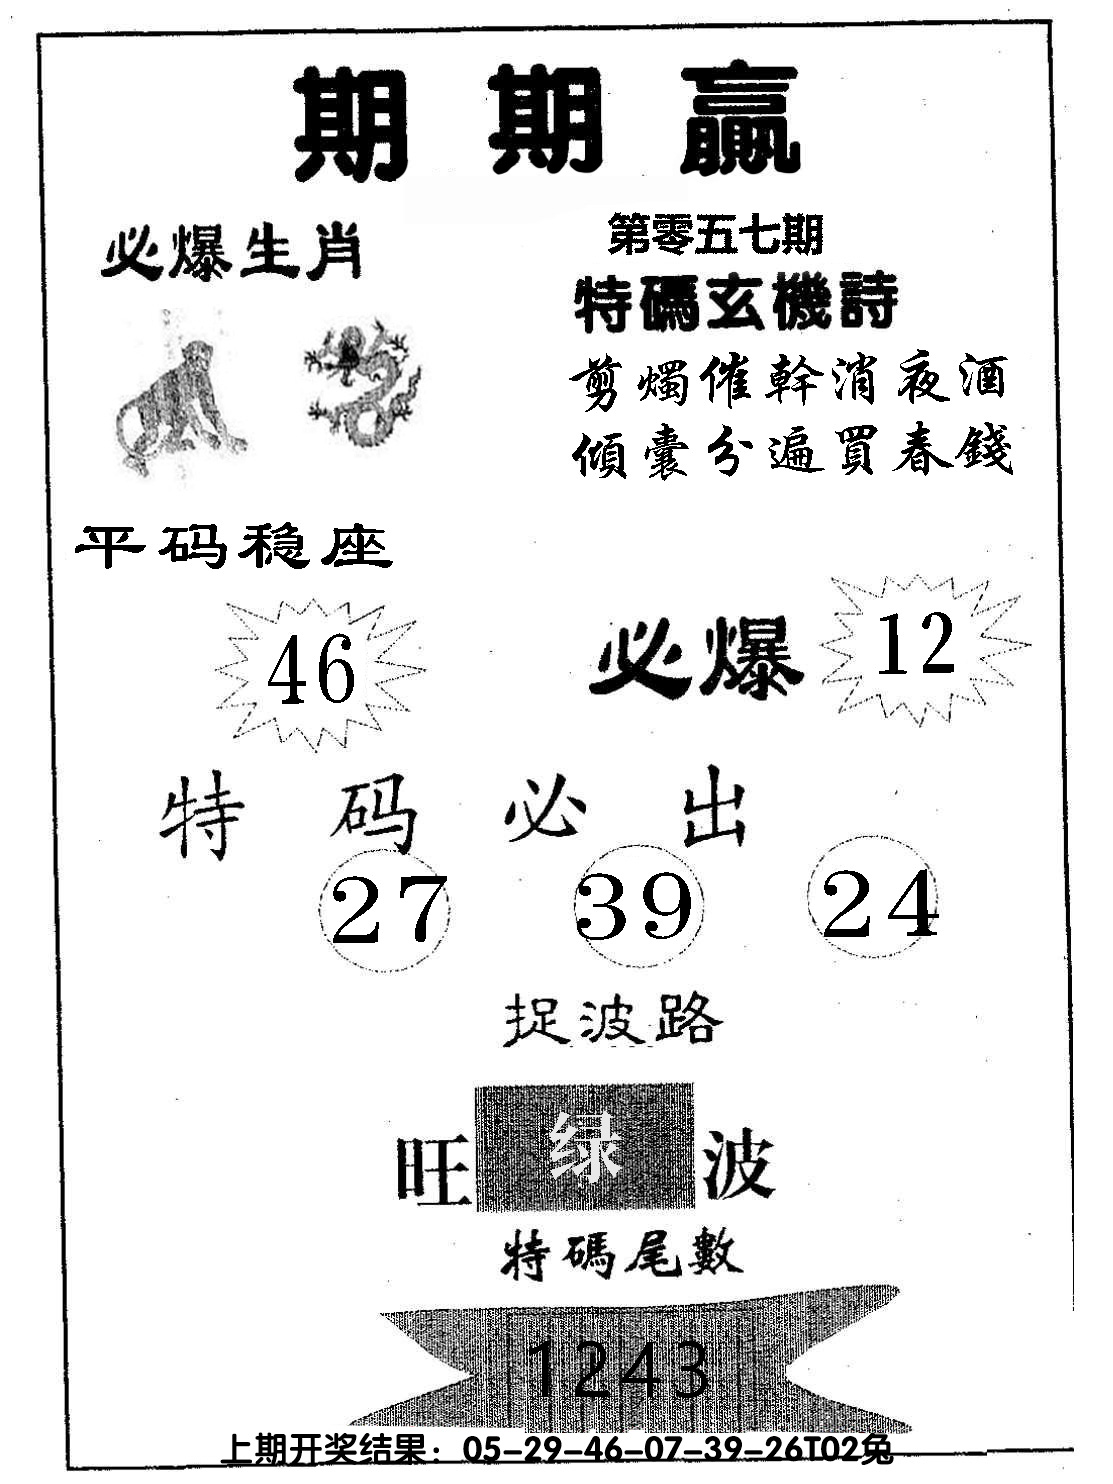 期期赢
必爆生肖
第零五七期
特碼玄機詩
剪燭催幹消夜酒
傾囊分遍買春錢
平码稳座
46
必爆 12
特码必出
27 39 24
捉波路
旺绿波
特碼尾數
1243
上期开奖结果：05-29-46-07-39-26T02兔